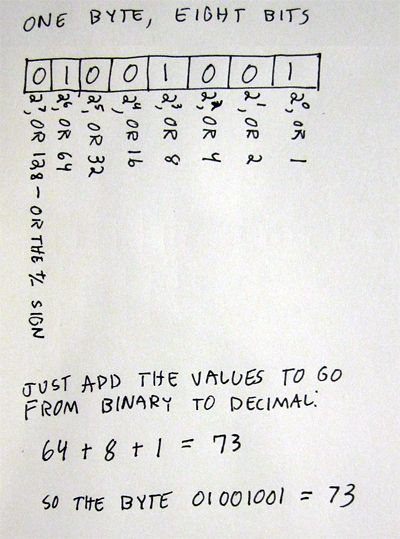 ONE BYTE, EIGHT BITS
0 1 0 0 1 0 0 1
2⁷, OR 128 - OR THE +/- SIGN
2⁶, OR 64
2⁵, OR 32
2⁴, OR 16
2³, OR 8
2², OR 4
2¹, OR 2
2⁰, OR 1
JUST ADD THE VALUES TO GO
FROM BINARY TO DECIMAL:
64 + 8 + 1 = 73
SO THE BYTE 01001001 = 73